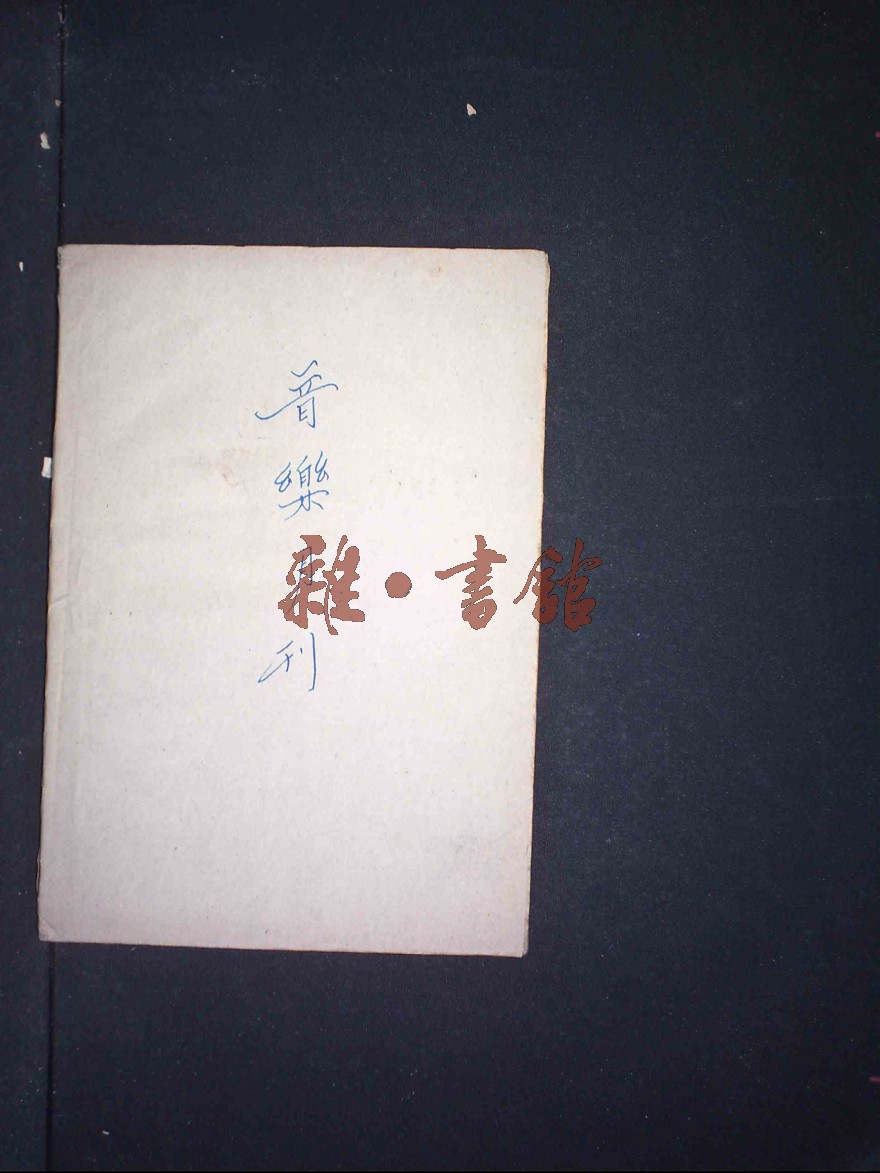 音樂月刊
雜·書館